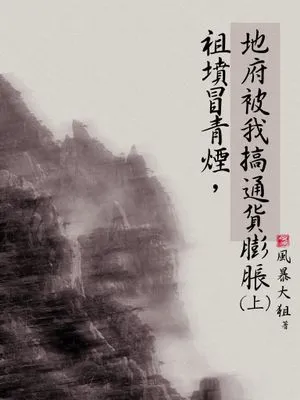 祖墳冒青煙，
地府被我搞通貨膨脹(上)
風暴大狙 著